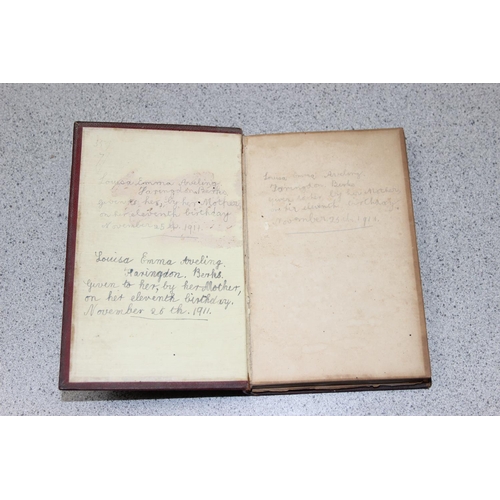 Louisa Emma Aveling
Faringdon Berks
given to her, by her Mother
on her eleventh birthday
November 25th 1911.
Louisa Emma Aveling.
Faringdon. Berks.
Given to her, by her Mother,
on her eleventh birthday.
November 25th. 1911.
Louisa Emma Aveling
Faringdon Berks
given to her by her Mother
birthday.
November 25th, 1911.